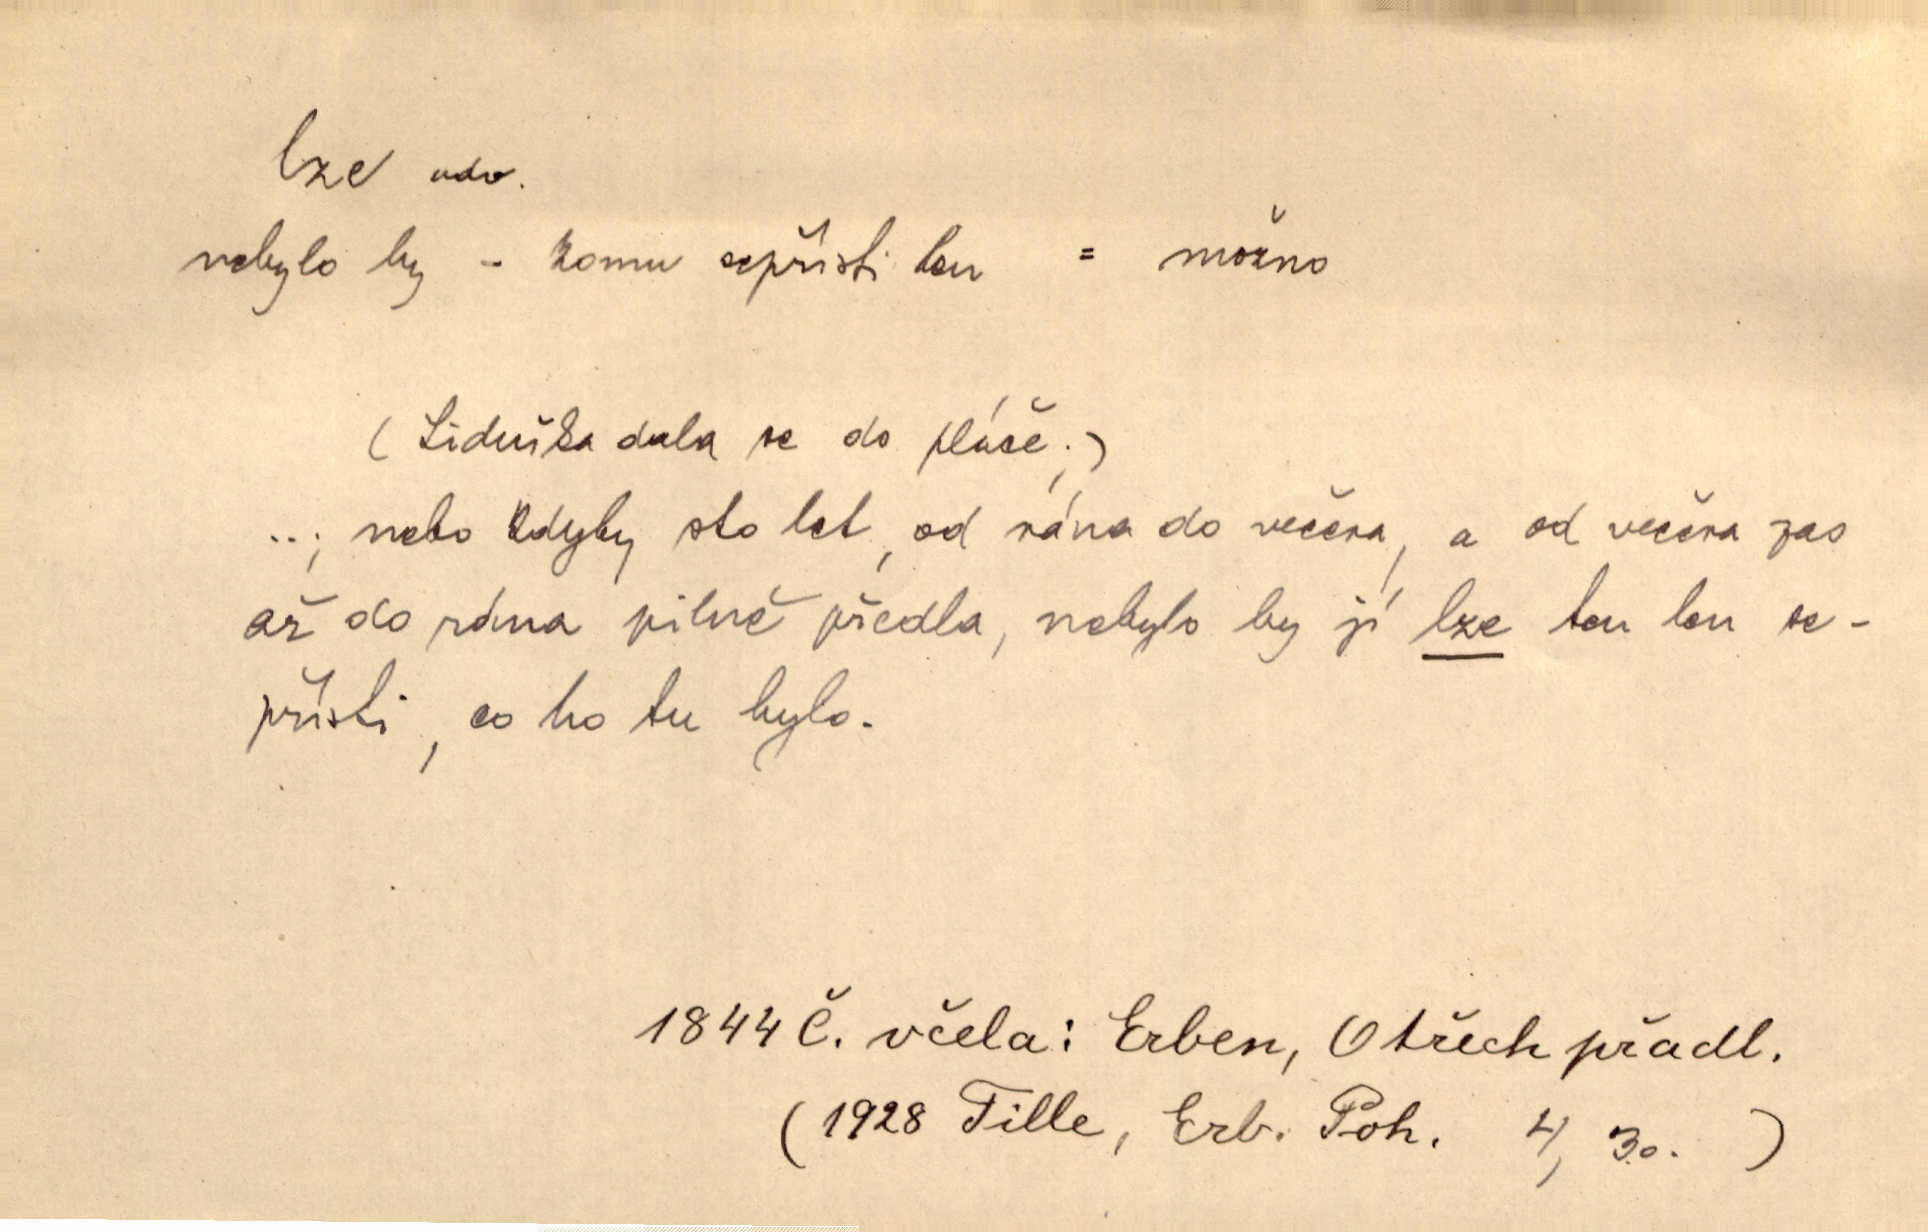 lze adv.
nebylo by - komu sepřísti len = možno
(Liduška dala se do pláče;)
...; nebo kdyby sto let, od rána do večera, a od večera zas
až do rána pilně předla, nebylo by jí lze ten len se-
přísti, co ho tu bylo.
1844 Č. včela: Erben, O třech přadl.
(1928 Tille, Erb. Poh. 4, 30. )